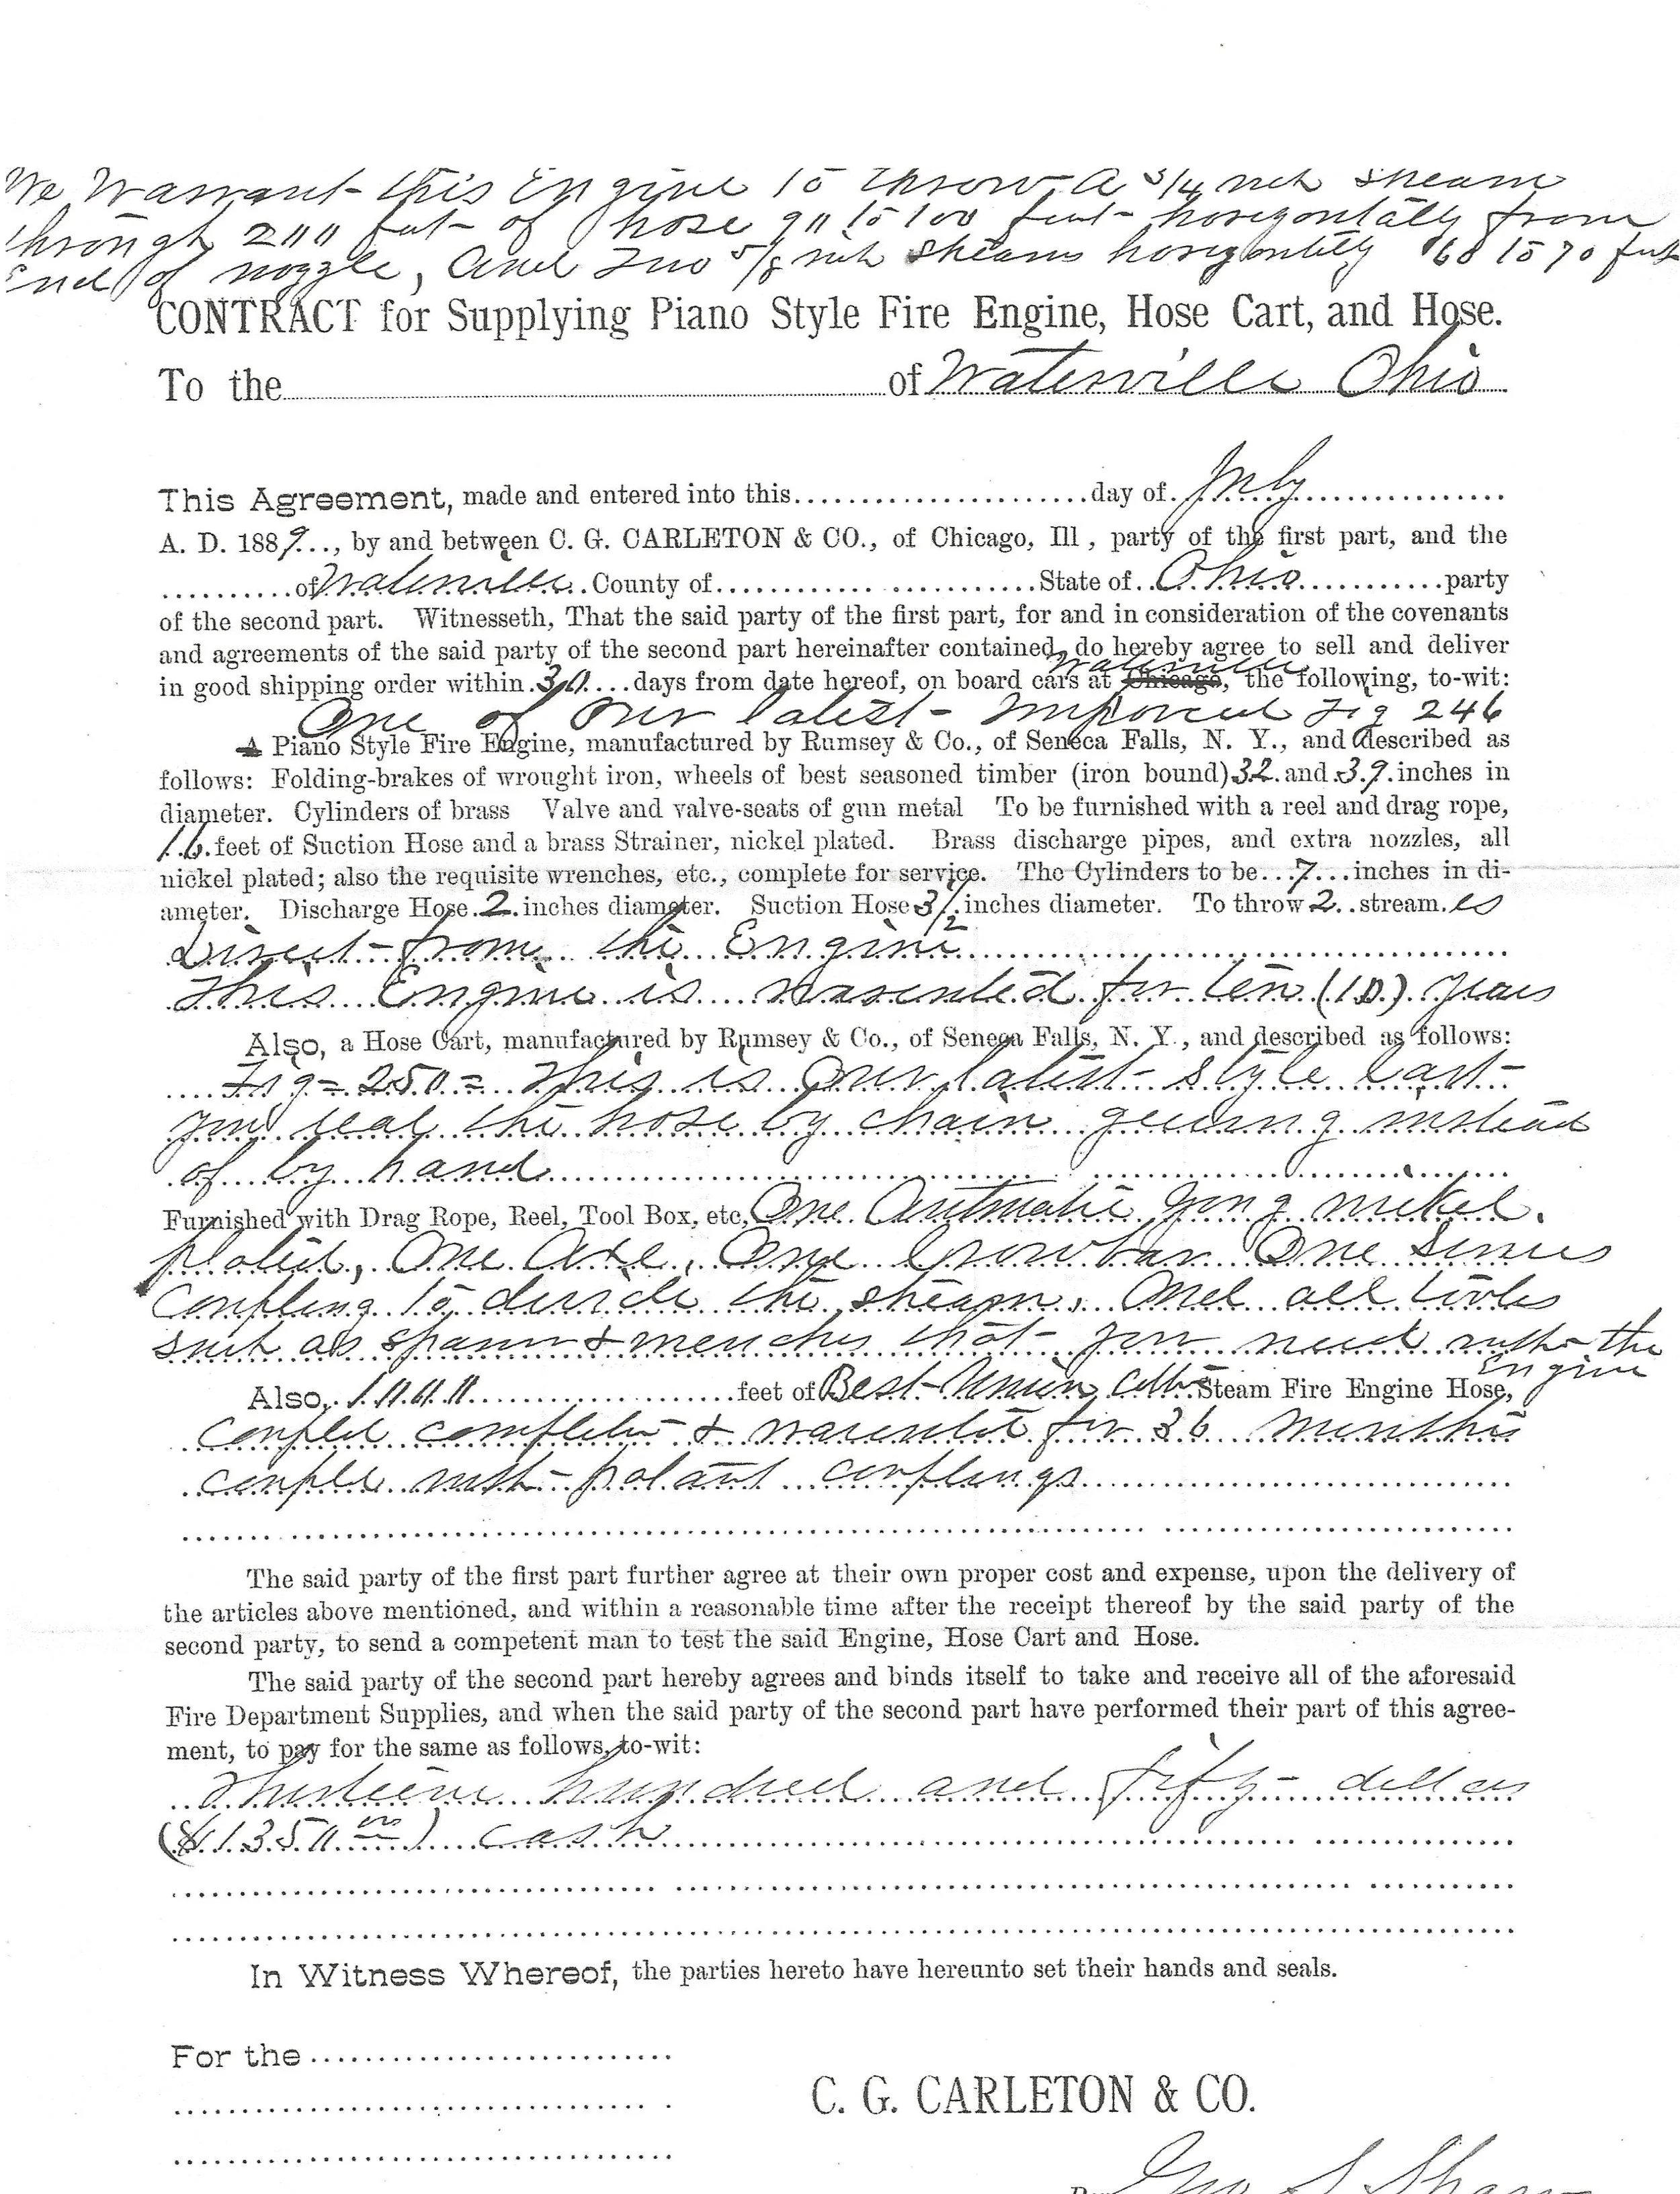 We Warrant this Engine to throw a 3/4 inch stream
through 200 feet of hose 90 to 100 feet horizontally from
End of nozzle, and Two 5/8 inch streams horizontily 68 to 70 feet
CONTRACT for Supplying Piano Style Fire Engine, Hose Cart, and Hose.
To the of Waterville Ohio
This Agreement, made and entered into this day of July
A. D. 1889, by and between C. G. CARLETON & CO., of Chicago, Ill, party of the first part, and the
of Waterville County of State of Ohio party
of the second part. Witnesseth, That the said party of the first part, for and in consideration of the covenants
and agreements of the said party of the second part hereinafter contained, do hereby agree to sell and deliver
Waterville
in good shipping order within 30 days from date hereof, on board cars at Chicago, the following, to-wit:
One of Our latest Improved Fig 246
A Piano Style Fire Engine, manufactured by Rumsey & Co., of Seneca Falls, N. Y., and described as
follows: Folding-brakes of wrought iron, wheels of best seasoned timber (iron bound) 32 and 39 inches in
diameter. Cylinders of brass Valve and valve-seats of gun metal To be furnished with a reel and drag rope,
16 feet of Suction Hose and a brass Strainer, nickel plated. Brass discharge pipes, and extra nozzles, all
nickel plated; also the requisite wrenches, etc., complete for service. The Cylinders to be 7 inches in di-
ameter. Discharge Hose 2 inches diameter. Suction Hose 3 1/2 inches diameter. To throw 2 stream es
Direct from the Engine
This Engine is warented for ten (10) years
Also, a Hose Cart, manufactured by Rumsey & Co., of Seneca Falls, N. Y., and described as follows:
Fig = 250 = This is Our latest style Cart
you real the hose by chain geering instead
of by hand
Furnished with Drag Rope, Reel, Tool Box, etc, One Autmatic gong nickel
plated, One Axe, One Crowbar One
Coupling to divide the stream, And all tools
such as & wrenches that you need with the
Engine
Also, 1000 feet of Best Union Steam Fire Engine Hose,
Coupled complete & warented for 36 months
couple with patant couplings
The said party of the first part further agree at their own proper cost and expense, upon the delivery of
the articles above mentioned, and within a reasonable time after the receipt thereof by the said party of the
second party, to send a competent man to test the said Engine, Hose Cart and Hose.
The said party of the second part hereby agrees and binds itself to take and receive all of the aforesaid
Fire Department Supplies, and when the said party of the second part have performed their part of this agree-
ment, to pay for the same as follows, to-wit:
Thirteen hundred and fifty dollars
($1350 00) cash
In Witness Whereof, the parties hereto have hereunto set their hands and seals.
For the
C. G. CARLETON & CO.
Geo S Shaw